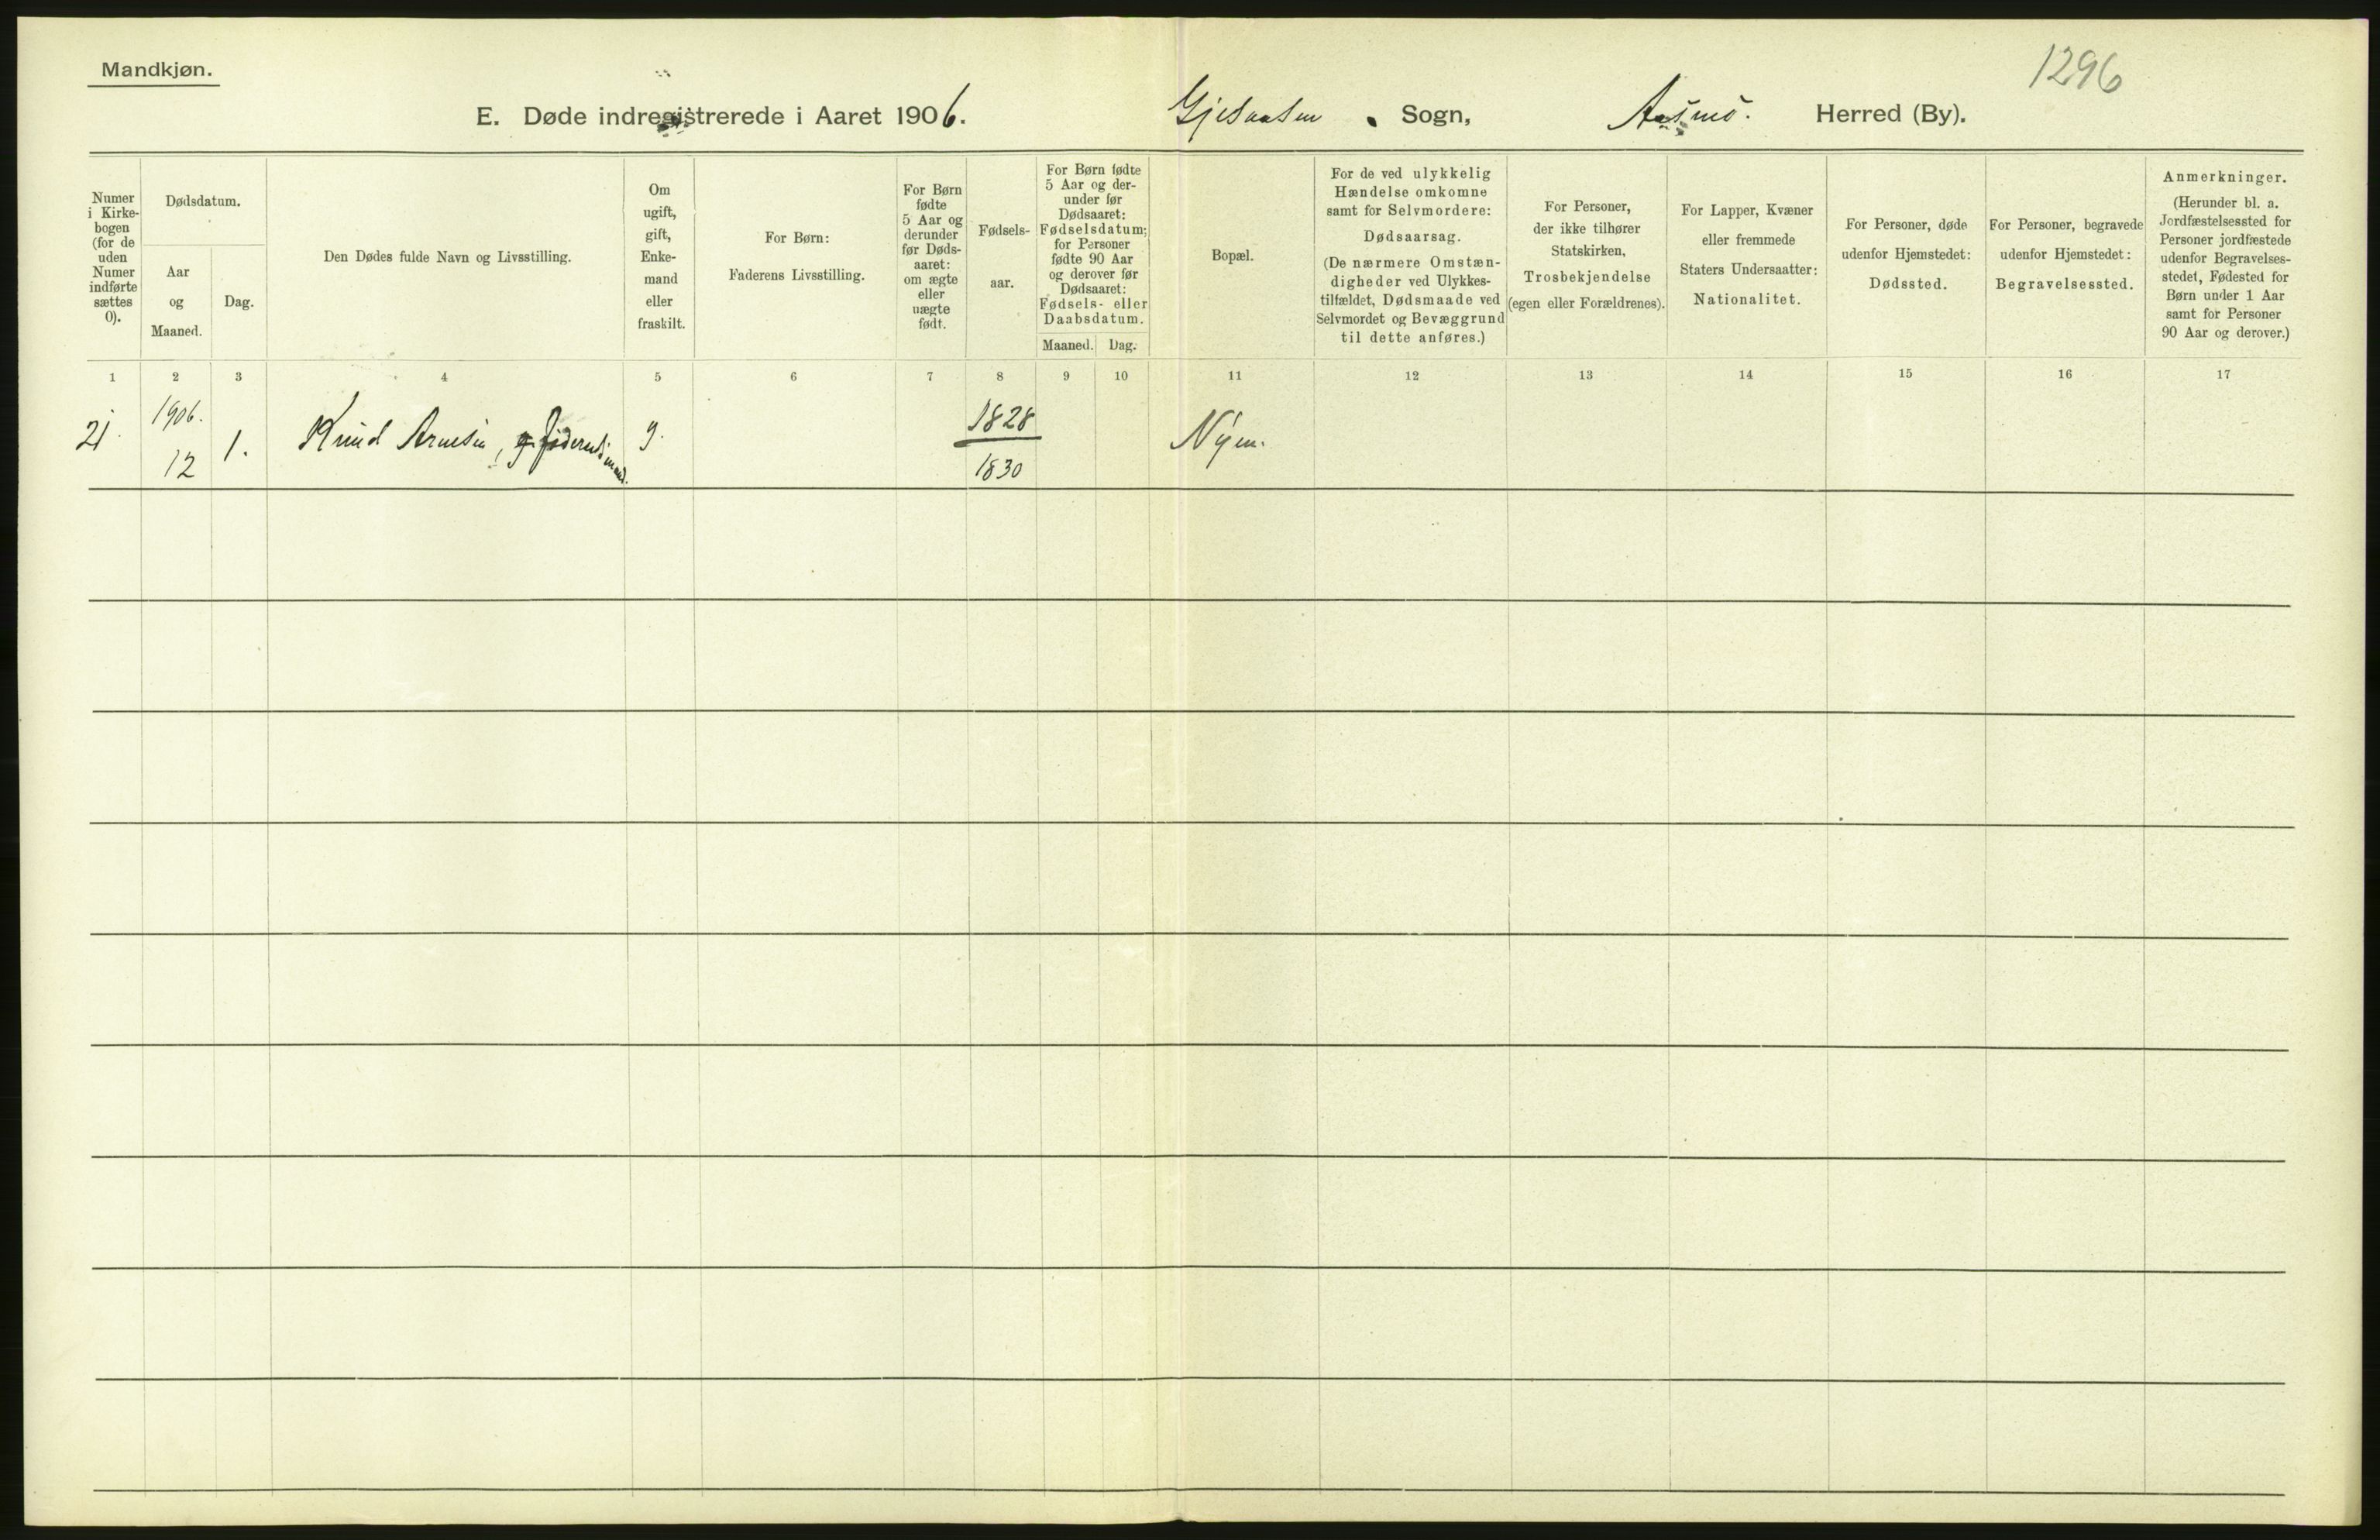 Mandkjøn.
1296
E. Døde indregistrerede i Aaret 1906. Gjesaasen Sogn, Aasnes. Herred (By).
Numer i Kirke-bogen (for de uden Numer indførte sættes 0).
Dødsdatum.
Aar og Maaned.
Dag.
Den Dødes fulde Navn og Livsstilling.
Om ugift, gift, Enke-mand eller fraskilt.
For Børn: Faderens Livsstilling.
For Børn fødte 5 Aar og derunder før Døds-aaret: om ægte eller uægte født.
Fødsels-aar.
For Børn fødte 5 Aar og der-under før Dødsaaret: Fødselsdatum; for Personer fødte 90 Aar og derover før Dødsaaret: Fødsels- eller Daabsdatum.
Maaned. Dag.
Bopæl.
For de ved ulykkelig Hændelse omkomne samt for Selvmordere: Dødsaarsag. (De nærmere Omstæn-digheder ved Ulykkes-tilfældet, Dødsmaade ved Selvmordet og Bevæggrund til dette anføres.)
For Personer, der ikke tilhører Statskirken, Trosbekjendelse (egen eller Forældrenes).
For Lapper, Kvæner eller fremmede Staters Undersaatter: Nationalitet.
For Personer, døde udenfor Hjemstedet: Dødssted.
For Personer, begravede udenfor Hjemstedet: Begravelsessted.
Anmerkninger. (Herunder bl. a. Jordfæstelsessted for Personer jordfæstede udenfor Begravelses-stedet, Fødested for Børn under 1 Aar samt for Personer 90 Aar og derover.)
1 2 3 4 5 6 7 8 9 10 11 12 13 14 15 16 17
21. 1906. 12 1. Knud Arnesen, g. 1828 Nyen.
1830